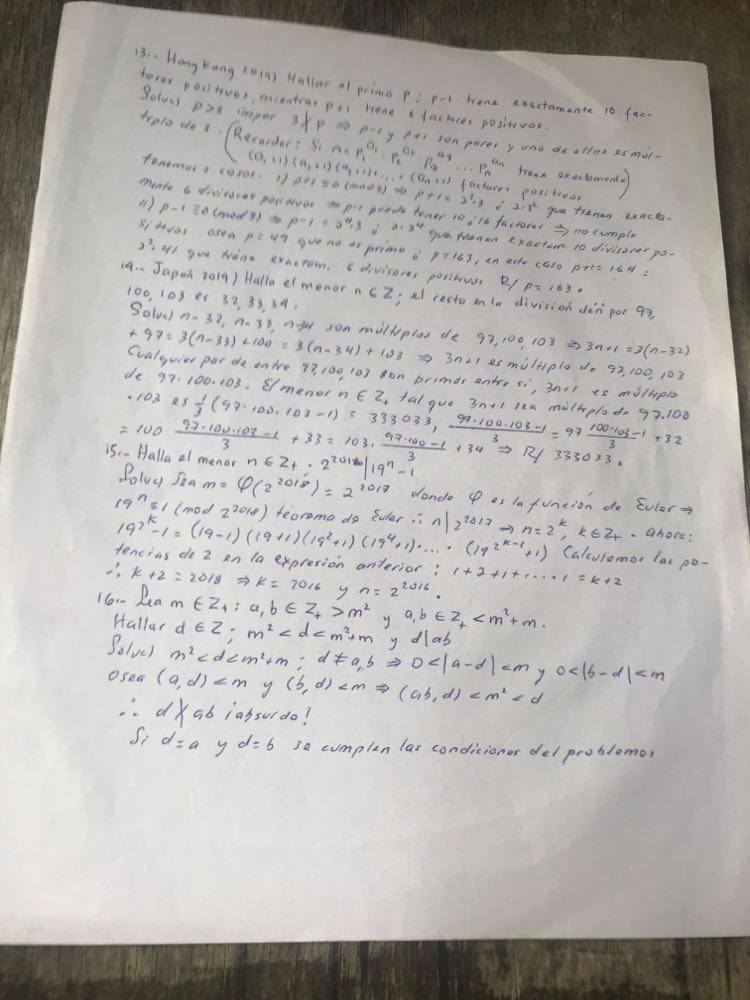 13.- Hong Kong 2019) Hallar el primo p; p-1 tiene exactamente 10 fac-
tores positivos, mientras p+1 tiene 6 factores positivos.
Soluc) p>3 impar 3∤p ⇒ p-1 y p+1 son pares y uno de ellos es múl-
tiplo de 3. (Recordar: Si n = p₁^a₁ · p₂^a₂ p₃^a₃ ... pₙ^aₙ tiene exactamente
(a₁+1)(a₂+1)(a₃+1)....(aₙ+1) factores positivos)
tenemos 2 casos. i) p+1≡0 (mod 3) ⇒ p+1 = 2²·3 ó 2·3² que tienen exacta-
mente 6 divisores positivos ⇒ p-1 puede tener 10 ó 16 factores ⇒ no cumple
ii) p-1≡0 (mod 3) ⇒ p-1 = 2⁴·3 ó 2·3⁴ que tienen exactam. 10 divisores po-
sitivos osea p=49 que no es primo ó p=163, en este caso p+1=164=
2²·41 que tiene exactam. 6 divisores positivos R/ p=163.
14.- Japón 2019) Halla el menor n∈Z; el resto en la división de n por 97,
100, 103 es 32, 33, 34.
Soluc) n-32, n-33, n-34 son múltiplos de 97, 100, 103 ⇒ 3n+1=3(n-32)
+97=3(n-33)+100=3(n-34)+103 ⇒ 3n+1 es múltiplo de 97, 100, 103
Cualquier par de entre 97, 100, 103 son primos entre sí, 3n+1 es múltiplo
de 97·100·103. El menor n∈Z₊ tal que 3n+1 sea múltiplo de 97·100
·103 es 1/3 (97·100·103-1) = 333033, (97·100·103-1)/3 = 97 (100·103-1)/3 +32
= 100 (97·100·103-1)/3 +33 = 103· (97·100-1)/3 +34 ⇒ R/ 333033.
15.- Halla el menor n∈Z₊ · 2^2018 | 19ⁿ-1
Soluc) Sea m=φ(2^2018)=2^2017 donde φ es la función de Euler ⇒
19ⁿ≡1 (mod 2^2018) teorema de Euler ∴ n|2^2017 ⇒ n=2^k, k∈Z₊. ahora:
19^2^k-1=(19-1)(19+1)(19²+1)(19⁴+1)..... (19^2^(k-1)+1) Calculemos las po-
tencias de 2 en la expresión anterior: 1+2+1+....1=k+2
∴ k+2=2018 ⇒ k=2016 y n=2^2016.
16.- Sea m∈Z₊: a,b∈Z₊>m² y a,b∈Z₊<m²+m.
Hallar d∈Z; m²<d<m²+m y d|ab
Soluc) m²<d<m²+m; d≠a,b ⇒ 0<|a-d|<m y 0<|b-d|<m
osea (a,d)<m y (b,d)<m ⇒ (ab,d)<m²<d
∴ d∤ab ¡absurdo!
Si d=a y d=b se cumplen las condiciones del problema.